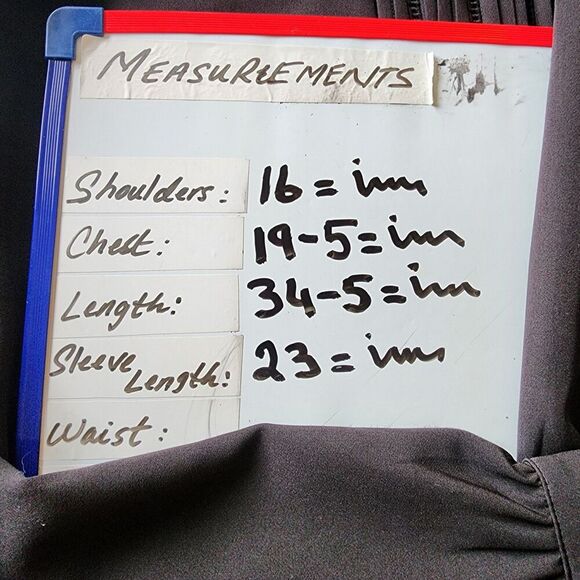 MEASUREMENTS
Shoulders: 16 = inn
Chest: 19-5 = inn
Length: 34-5 = inn
Sleeve Length: 23 = inn
Waist: